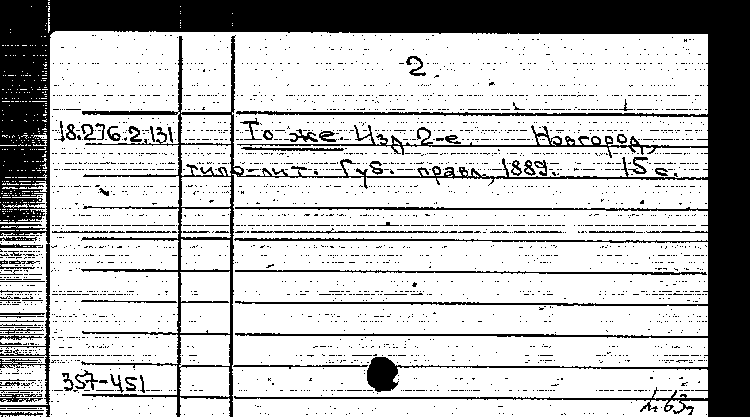 2
18.276.2.131 То же. Изд. 2-е. Новгород,
типо-лит. Губ. правл., 1889. 15 с.
357-451